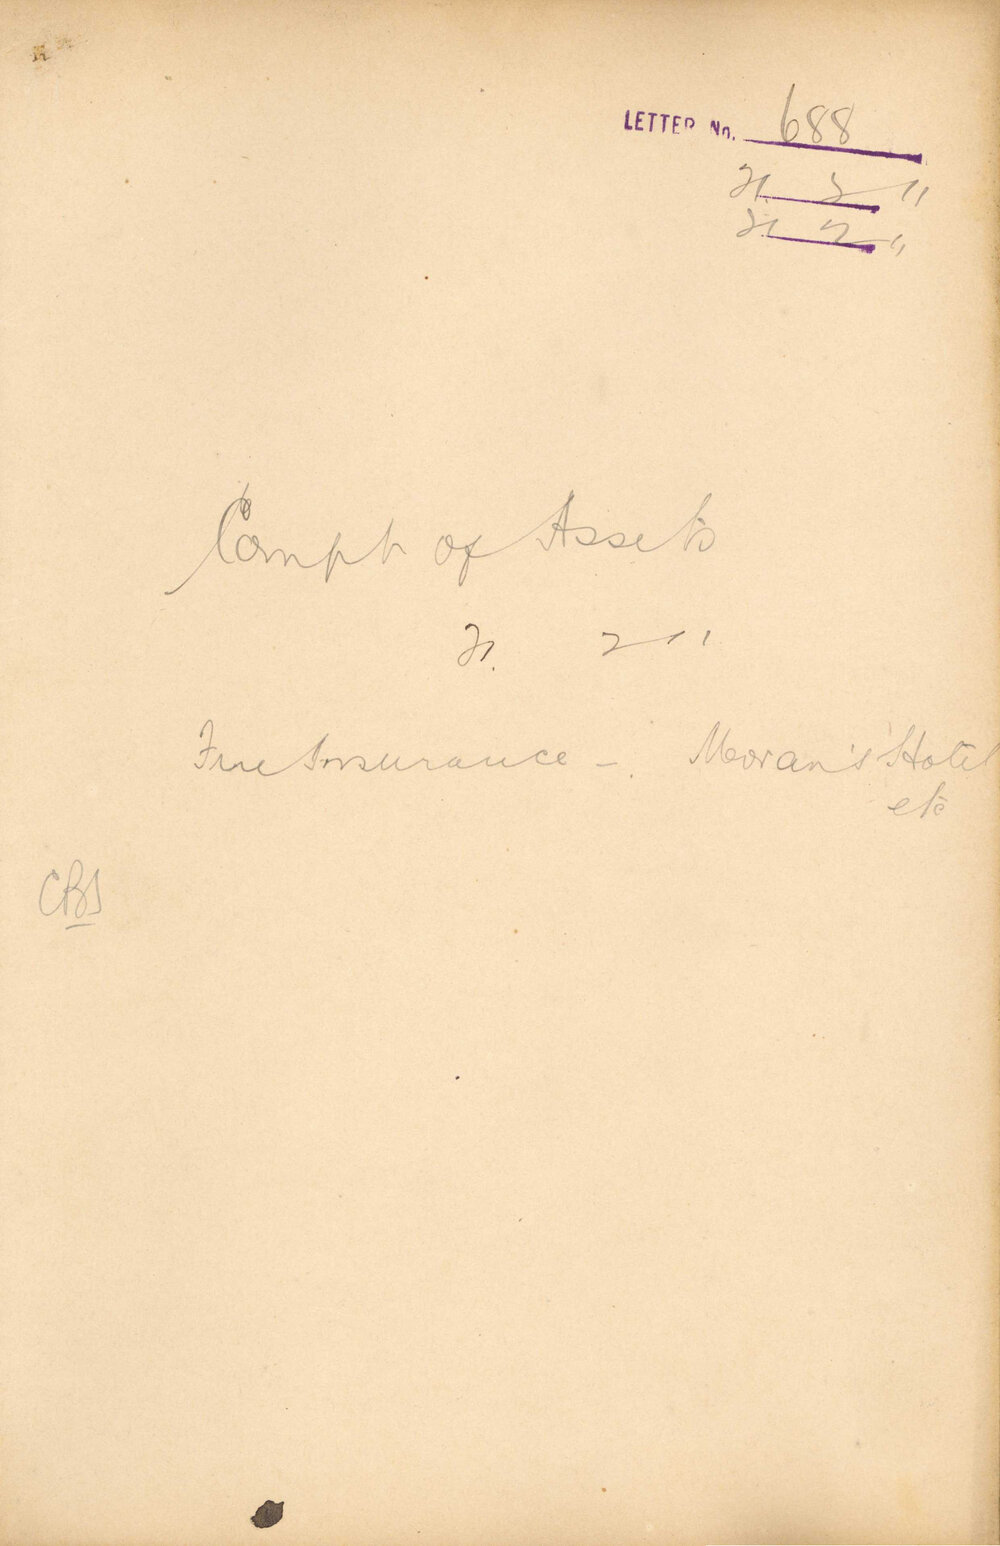 LETTER No. 688
21. 2 11
21 2 11
Compt of Assets
21. 2 11
Fire Insurance - Moran's Hotel
etc
CBS